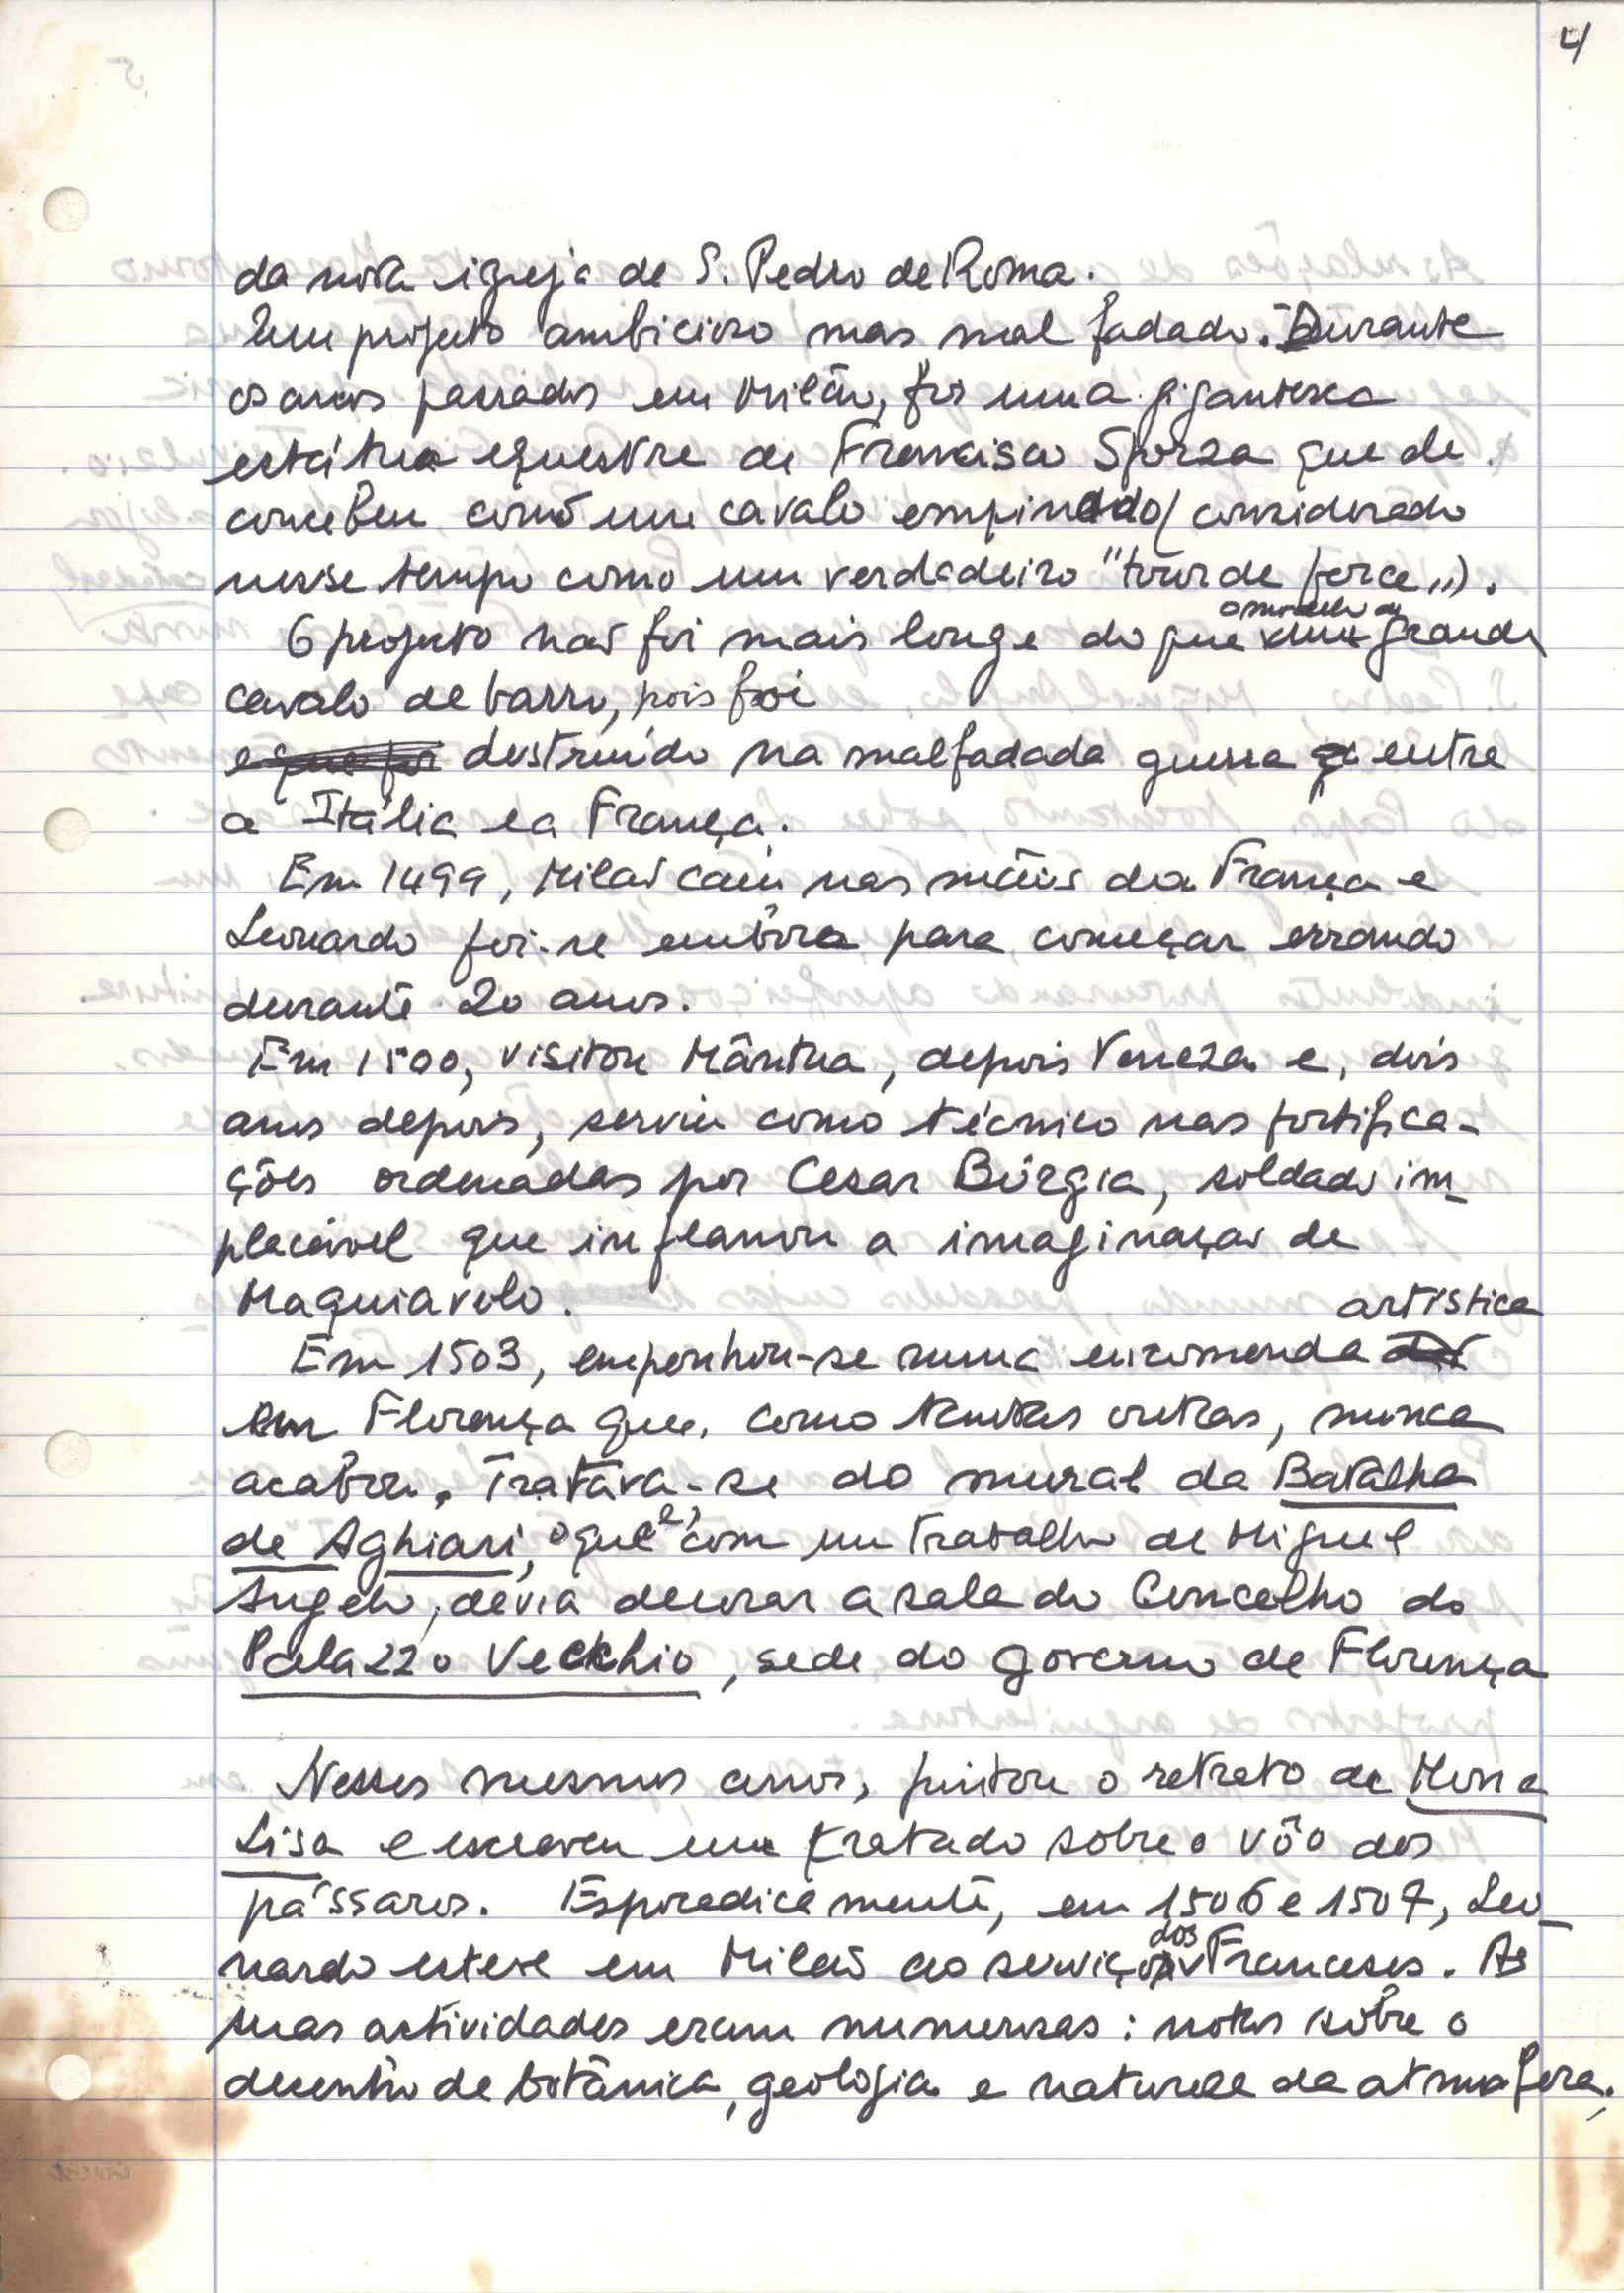 4
da nova igreja de S. Pedro de Roma.
Um projecto ambicioso mas mal fadado. Durante
os anos passados em Milão, foi uma gigantesca
estátua equestre de Francisco Sforza que de
concebeu como um cavalo empinado (considerado
nesse tempo como um verdadeiro "tour de force").
O projecto não foi mais longe do que o modelo de grande
cavalo de barro, pois foi
destruído na malfadada guerra entre
a Itália e a França.
Em 1499, Milão caíu nas mãos da França e
Leonardo foi-se embora para começar errando
durante 20 anos.
Em 1500, visitou Mântua, depois Veneza e, dois
anos depois, serviu como técnico nas fortifica-
ções ordenadas por Cesar Bórgia, soldado im-
placável que inflamou a imaginação de
Maquiavelo.
Em 1503, empenhou-se numa encomenda artística
em Florença que, como tantas outras, nunca
acabou. Tratava-se do mural da Batalha
de Aghiari, o que e, com um trabalho de Miguel
Angelo, devia decorar a sala do Concelho do
Palazzo Vecchio, sede do governo de Florença
Nesses mesmos anos, pintou o retrato de Mona
Lisa e escreveu um tratado sobre o vôo dos
pássaros. Esporadicamente, em 1506 e 1507, Leo-
nardo esteve em Milão ao serviço dos Franceses. As
suas actividades eram numerosas: notas sôbre o
desenho de botânica, geologia e natureza da atmosfera,